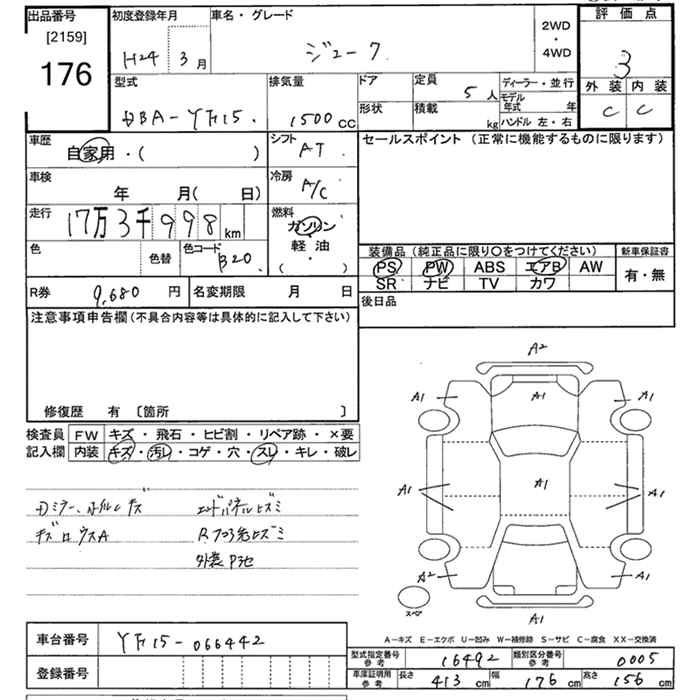 出品番号
[2159]
176
初度登録年月
H24 3月
車名・グレード
ジューク
2WD
・
4WD
評価点
3
外装 内装
C C
型式
DBA-YF15.
排気量
1500cc
ドア
形状
定員
5人
積載
kg
ディーラー・並行
モデル年式 年
ハンドル 左・右
車歴
自家用・( )
シフト
AT
セールスポイント (正常に機能するものに限ります)
車検
年 月( 日)
冷房
A/C
走行
17万3千998km
燃料
ガソリン
軽油
( ・ )
色
色替
色コード
B20.
装備品 (純正品に限り○をつけてください)
PS PW ABS エアB AW
SR ナビ TV カワ
新車保証書
有・無
R券 9,680円
名変期限 月 日
後日品
注意事項申告欄(不具合内容等は具体的に記入して下さい)
修復歴 有 〔箇所 〕
検査員記入欄
FW キズ・飛石・ヒビ割・リペア跡・×要
内装 キズ・汚レ・コゲ・穴・スレ・キレ・破レ
Dミラー、ホイルキズ
エンドパネルヒズミ
キズロウスA
外装P他
A2
A1 A1 A1
A1 A1 A1
A2 A1
A1
スペア
A-キズ E-エクボ U-凹み W-補修跡 S-サビ C-腐食 XX-交換済
車台番号 YF15-066442
登録番号
型式指定番号 参考 16492
類別区分番号 参考 0005
車庫証明用 参考 長さ 413cm 幅 176cm 高さ 156cm